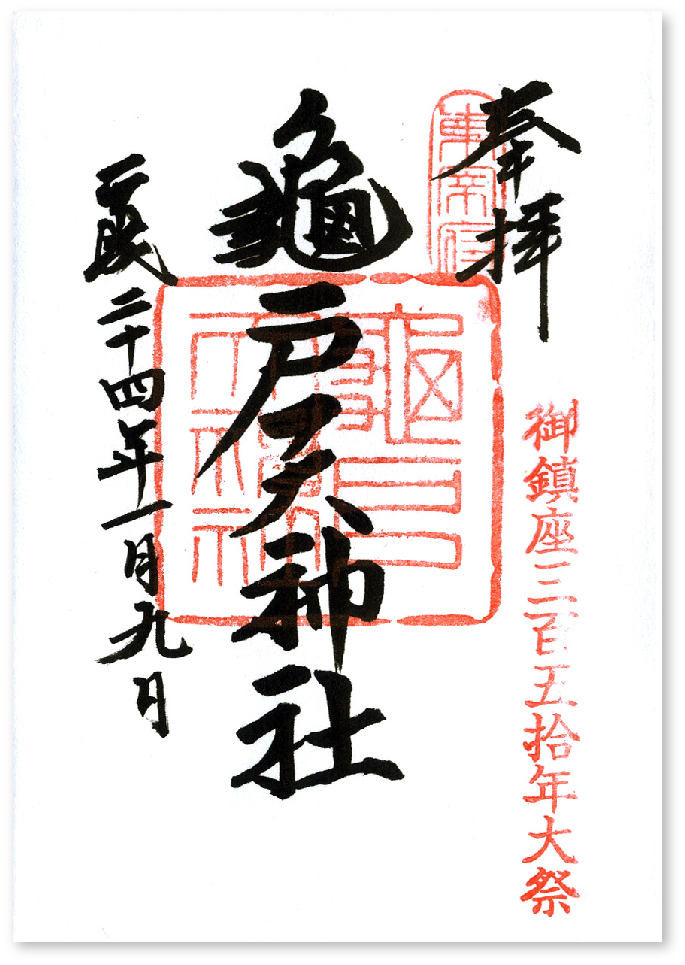 奉拝
東宰府
御鎮座三百五拾年大祭
龜戸天神社
龜戸天神社
平成二十四年一月九日